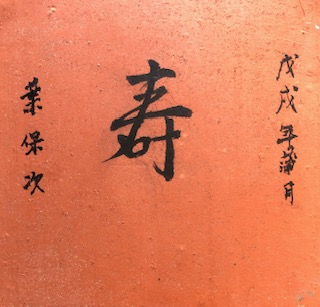 戊戌年蒲月
寿
葉保次